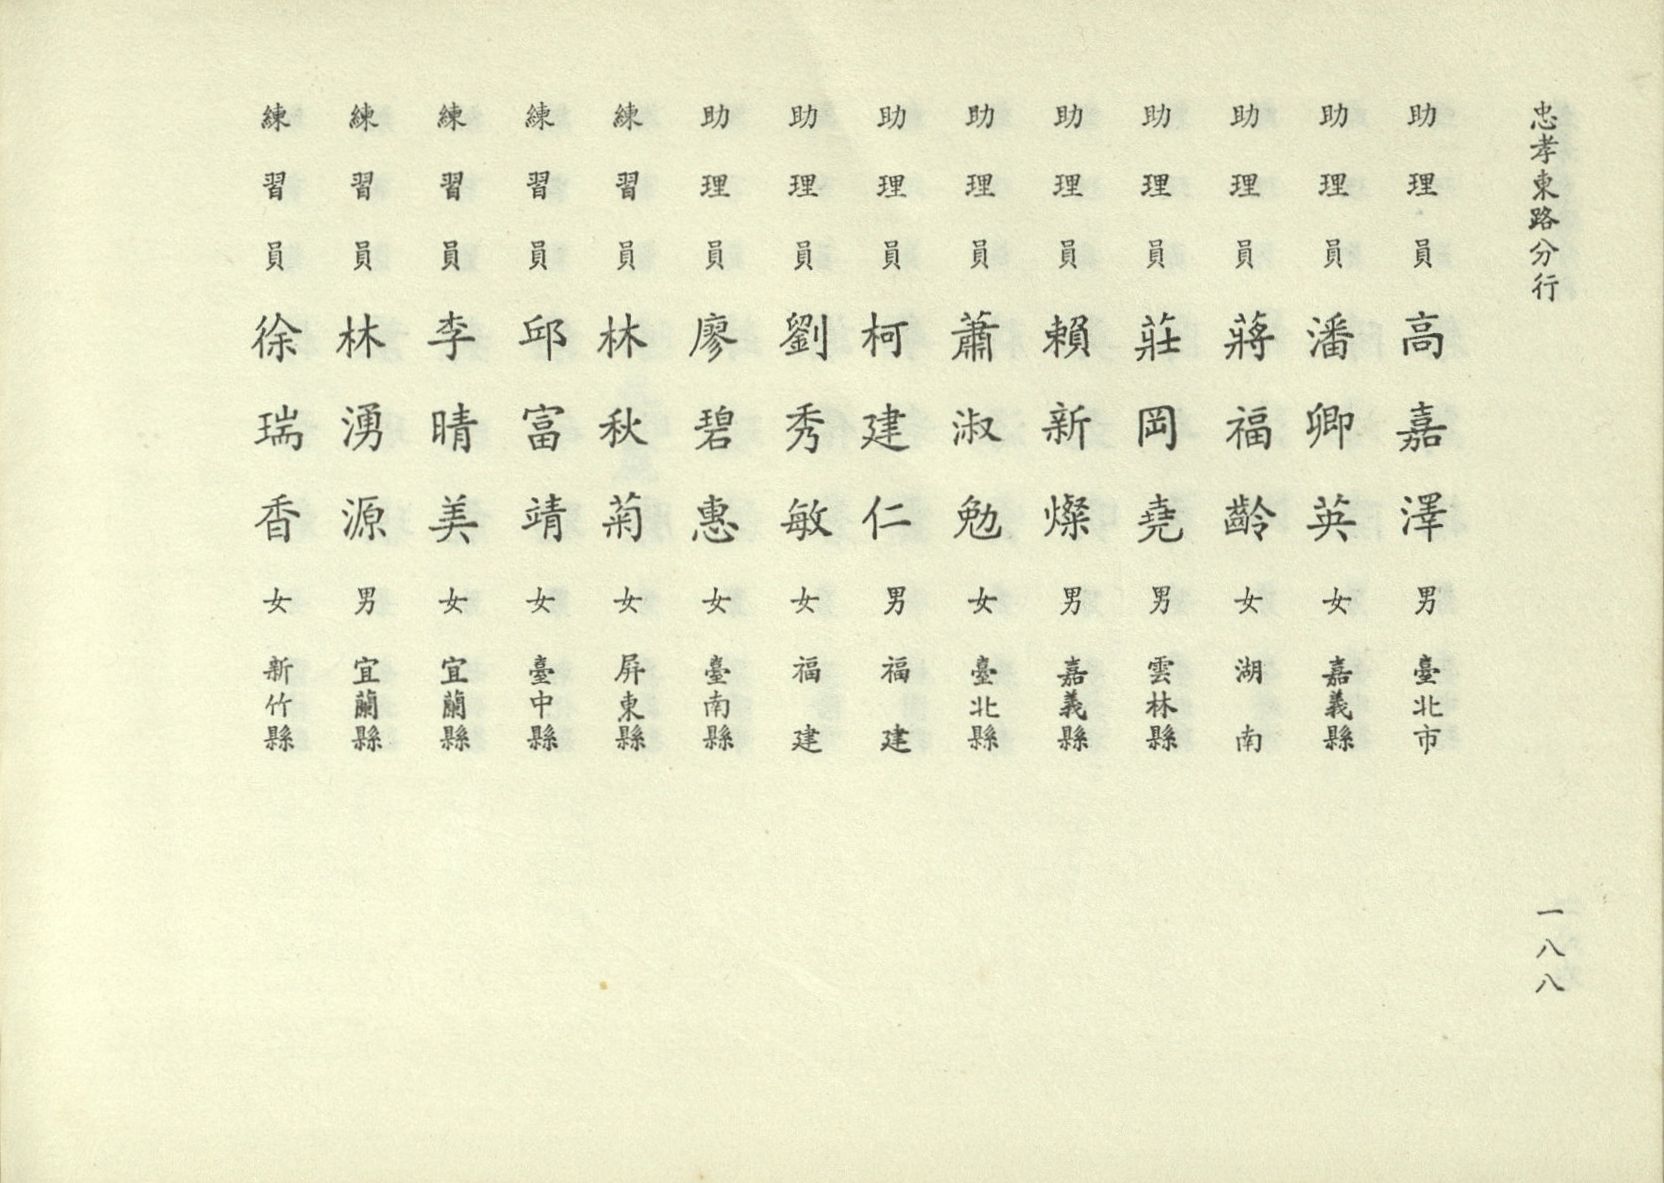 忠孝東路分行
助理員高嘉澤男臺北市
助理員潘卿英女嘉義縣
助理員蔣福齡女湖南
助理員莊岡堯男雲林縣
助理員賴新燦男嘉義縣
助理員蕭淑勉女臺北縣
助理員柯建仁男福建
助理員劉秀敏女福建
助理員廖碧惠女臺南縣
練習員林秋菊女屏東縣
練習員邱富靖女臺中縣
練習員李晴美女宜蘭縣
練習員林湧源男宜蘭縣
練習員徐瑞香女新竹縣
一八八